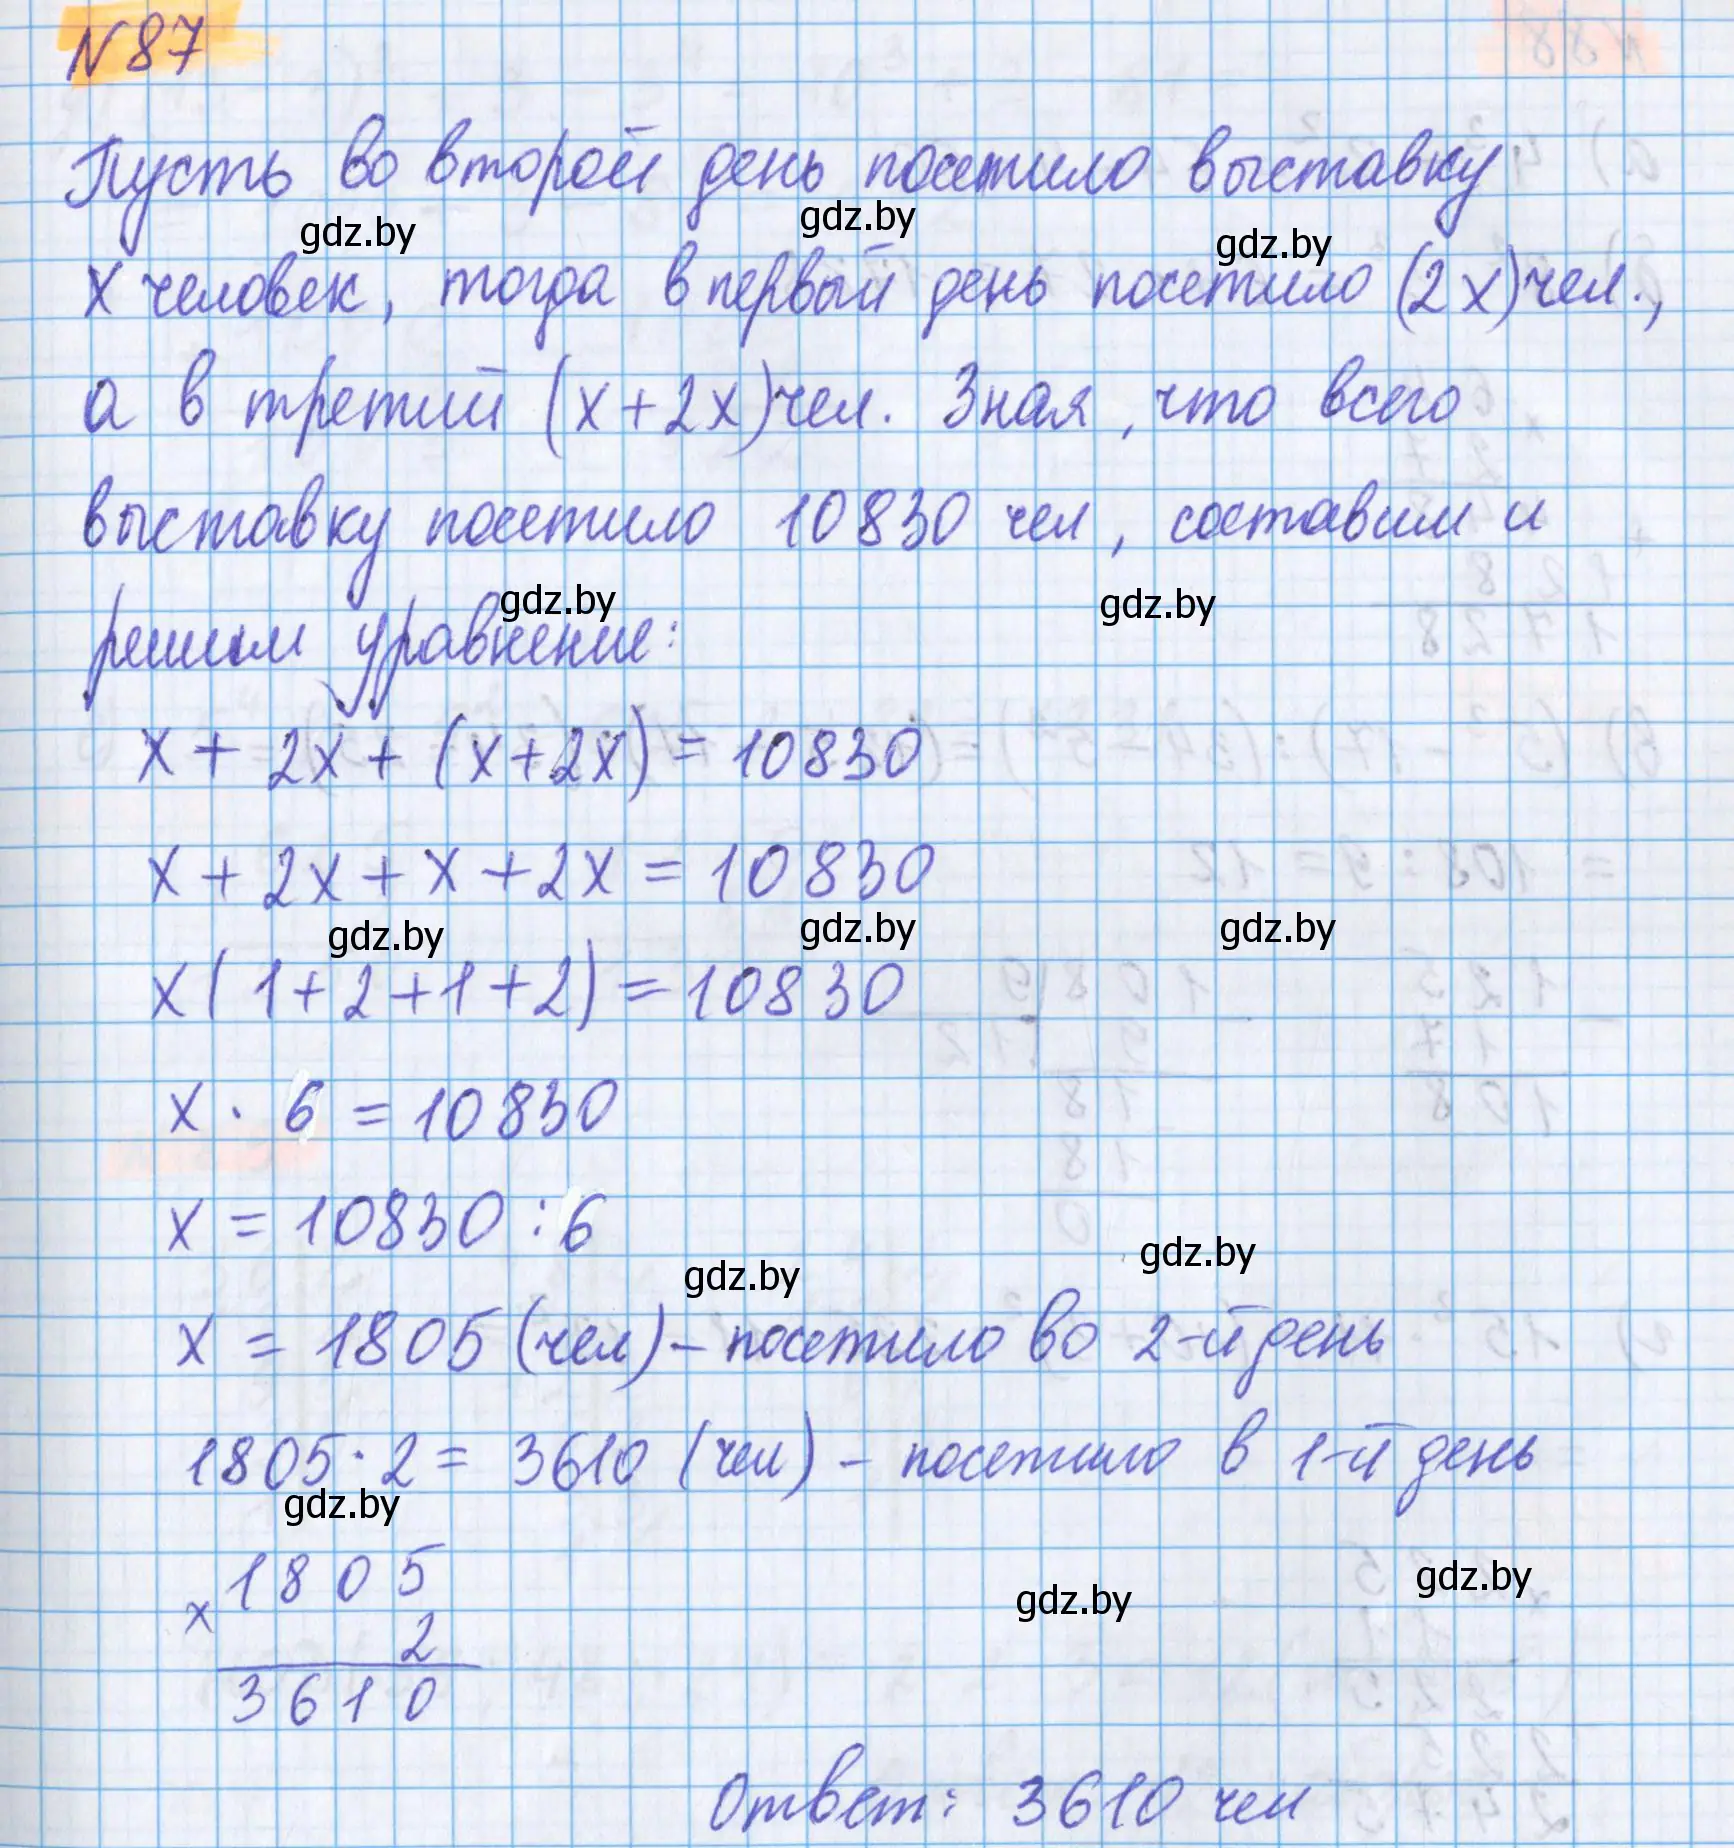 N 87
Пусть во второй день посетило выставку
gdz.by gdz.by gdz.by
x человек, тогда в первый день посетило (2x) чел.,
а в третий (x+2x) чел. Зная, что всего
выставку посетило 10830 чел, составим и
gdz.by gdz.by
решим уравнение:
x + 2x + (x+2x) = 10830
x + 2x + x + 2x = 10830
gdz.by gdz.by gdz.by
x(1+2+1+2) = 10830
x · 6 = 10830
x = 10830 : 6
gdz.by gdz.by
x = 1805 (чел) – посетило во 2-й день
1805 · 2 = 3610 (чел) – посетило в 1-й день
gdz.by
x 1805
gdz.by gdz.by
2
3610
Ответ: 3610 чел